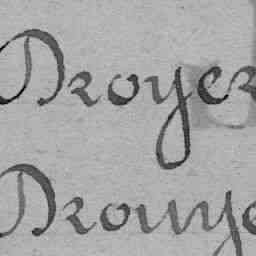 Droyer
Drouye